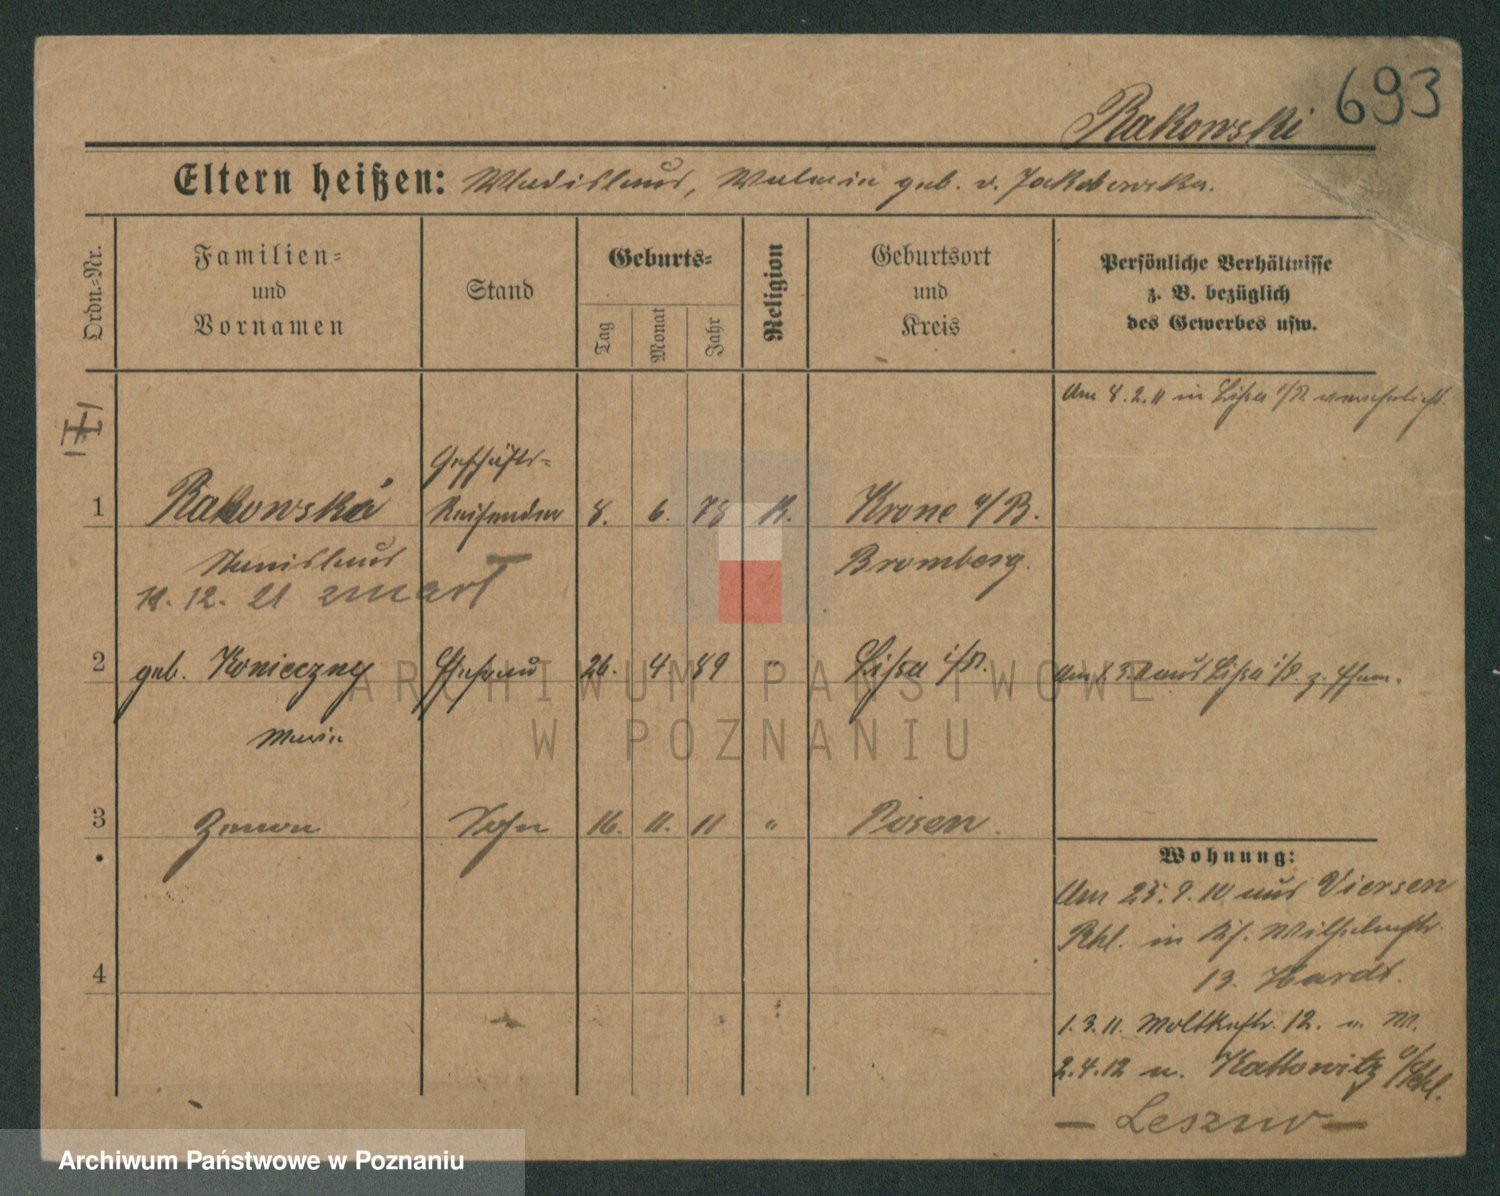 693
Rakowski
Eltern heißen: Wladislaus, Walerie geb. v. Jakubowska.
Ordn.-Nr.
Familien-
und
Vornamen
Stand
Geburts-
Tag
Monat
Jahr
Religion
Geburtsort
und
Kreis
Persönliche Verhältnisse
z. B. bezüglich
des Gewerbes usw.
Am 8.2.11 in Lissa i/P. verehelicht.
Geschäfts-
1 Rakowski Reisender 8. 6. 78 K. Krone a/B.
Stanislaus Bromberg.
12. 21 zmarł
2 geb. Konieczny Ehefrau 26. 4. 89 " Lissa i/P. aus Lissa i/P. z. Ehem.
Marie
3 Zenon Sohn 16. 11. 11 " Posen.
4
Wohnung:
Am 25.9.10 aus Viersen
Rhl. in Wilhelmstr.
13. Hardt.
1.3.11. Moltkestr. 12. M.
2.4.12 n. Kattowitz
— Leszno —
ARCHIWUM PAŃSTWOWE
W POZNANIU
Archiwum Państwowe w Poznaniu